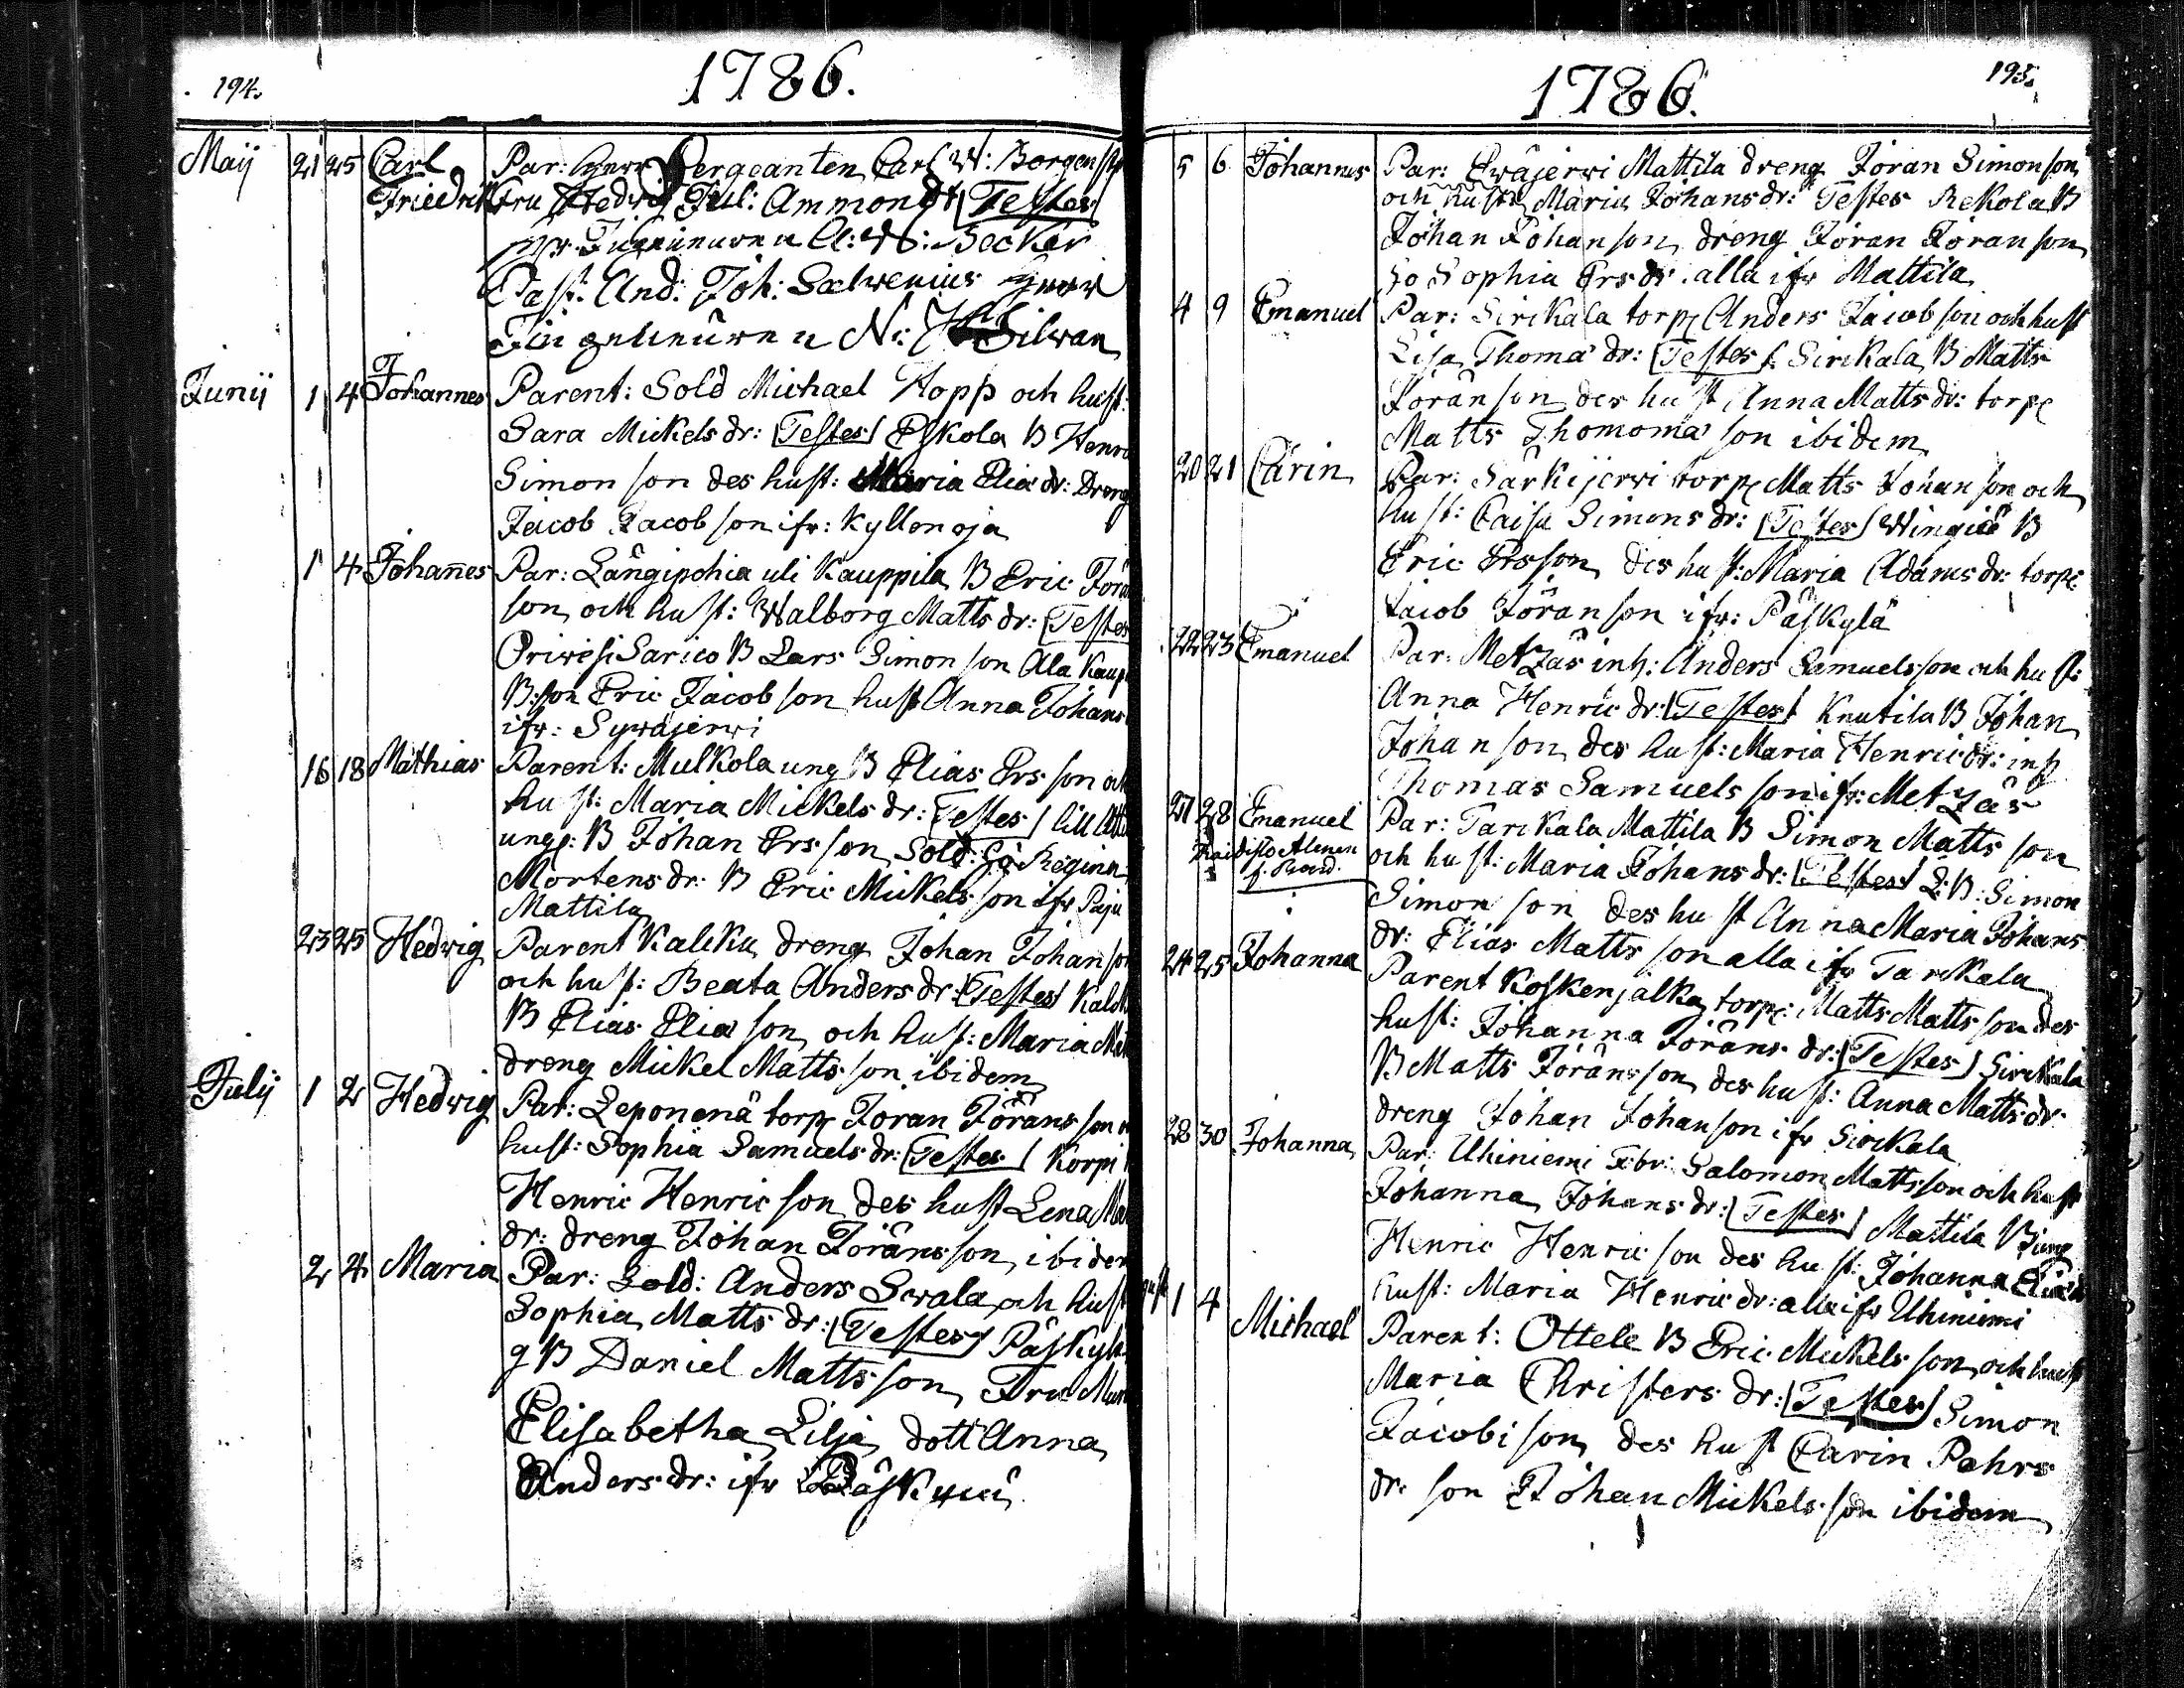 194.
1786.
Maij 21 25 Carl Par: Herr Sergeanten Carl W: Borgenst
Friedrik Fru Hedvig Jul: Ammondt Testes
A: W: Becker
Past: And: Joh: Salvenius Herr
N: Silwan
Junij 1 4 Johannes Parent: Sold Michael Hopp och hust:
Sara Mickels dr: Testes Eskola B Henric
Simon son des hust: Maria Elia dr: Dreng
Jacob Jacob son ifr: Kyllonoja
1 4 Johannes Par: Långipohia uli Kauppila B Eric Jöra
son och hust: Walborg Matts dr: Testes
Oriwesi Sarico B Lars Simon son Ala Kaup
B: son Eric Jacob son hust Anna Johans
ifr: Sywäjerwi
16 18 Mathias Parent: Mulkola ung B Elias Ers son och
hust: Maria Mickels dr: Testes lill
ung: B Johan Ers son Sold: Hö Regina
Mortens dr: B Eric Mickels son ifr Paju
Mattila
23 25 Hedwig Parent Kalcku dreng Johan Johan son
och hust: Beata Anders dr: Testes Kalck
B Elias Elia son och hust: Maria Ma
dreng Mickel Matts son ibidem
Julij 1 2 Hedwig Par: Leponenä torp Joran Jörans son
hust: Sophia Samuels dr: Testes Korpi
Henric Henric son des hust Lena Ma
dr: dreng Johan Jörans son ibidem
2 4 Maria Par: Sold: Anders Swala och hust
Sophia Matts dr: Testes Päskylä
g B Daniel Matts son Fru
Elisabetha Lilja dott Anna
Anders dr: ifr
195.
1786.
5 6 Johannes Par: Ewäjerwi Mattila dreng Jöran Simonson
och hustr Maria Johans dr: Testes Rekola B
Johan Johan son dreng Jöran Joran son
Sophia Ers dr. alla ifr Mattila
4 9 Emanuel Par: Sirckala torp Anders Jacob son och hust
Lisa Thoma dr: Testes Sirckala B Matts
Jöran son des hust Anna Matts dr: torp
Matts Thomoma son ibidem
20 21 Carin Par: Särkijerwi torp Matts Johan son och
hust: Caisa Simons dr: Testes Wingiä B
Eric Ersson des hust: Maria Adams dr: torp:
Jacob Jöran son ifr: Päskylä
22 23 Emanuel Par: Metzäs inh: Anders Samuelsson och hust:
Anna Henric dr: Testes Knutila B Johan
Johan son des hust: Maria Henric dr: inh
Thomas Samuels son ifr: Metzäs
27 28 Emanuel Par: Tarckala Mattila B Simon Matts son
och hust: Maria Johans dr: Testes L: B: Simon
Simon son des hust Anna Maria Johans
dr: Elias Matts son alla ifr Tarckala
24 25 Johanna Parent Koskenjalka torp: Matts Matts son des
hust: Johanna Jörans dr: Testes Sirckala
B Matts Jörans son des hust: Anna Matts dr:
dreng Johan Johan son ifr Sirckala
28 30 Johanna Par: Uhiniemi Salomon Mattsson och hust
Johanna Johans dr: Testes Mattila B ung
Henric Henric son des hust: Johanna
hust: Maria Henric dr: alla ifr Uhiniemi
1 4 Michael Parent: Ottele B Eric Mickels son och hust
Maria Christers dr: Testes Simon
Jacobi son des hust Carin Pehrs
dr. son Johan Mickels son ibidem